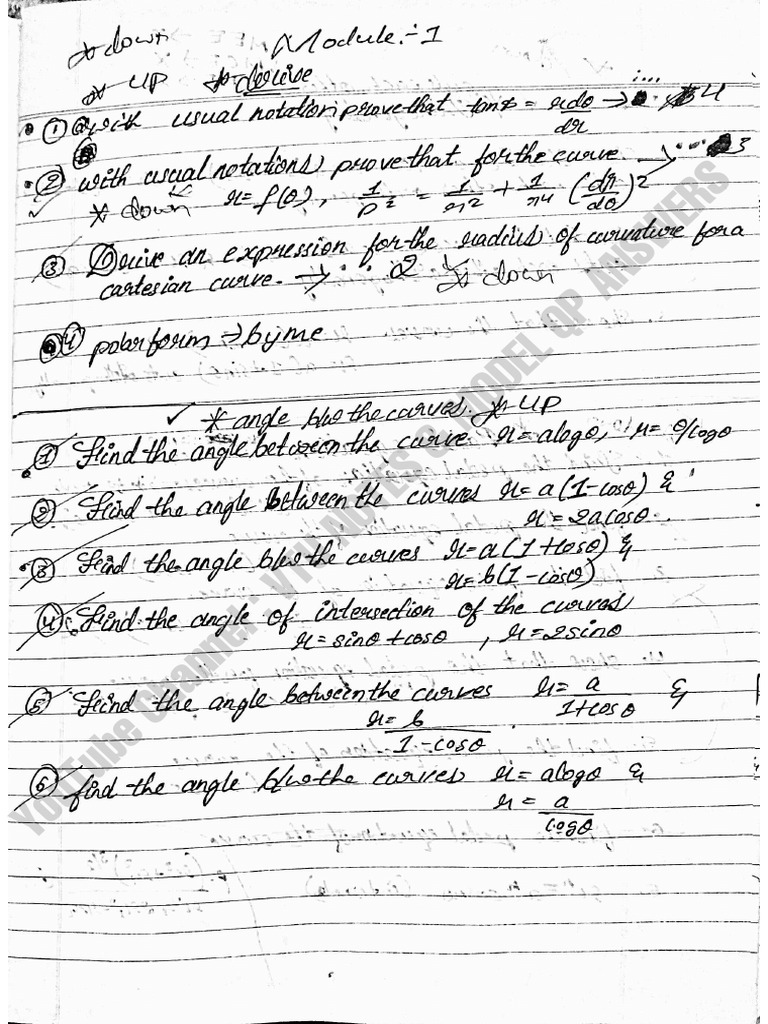 * down Module:-1
* UP * derive
① with usual notation prove that tanφ = rdθ/dr → 4
② with usual notations prove that for the curve. → 3
* down r=f(θ), 1/p² = 1/r² + 1/r⁴ (dr/dθ)²
③ Derive an expression for the radius of curvature for a
cartesian curve. → 2 * down
④ polar form → by me
✓ * angle b/w the curves. * UP
① Find the angle between the curve r=alogθ, r= θ/logθ
② Find the angle between the curves r=a(1-cosθ) &
r=2acosθ.
③ Find the angle b/w the curves r=a(1+cosθ) &
r=b(1-cosθ)
④ Find the angle of intersection of the curves
r=sinθ+cosθ, r=2sinθ
⑤ Find the angle between the curves r= a/1+cosθ &
r= b/1-cosθ.
⑥ find the angle b/w the curves r=alogθ &
r= a/logθ
YouTube Channel: VTU NOTES & MODEL QP ANSWERS